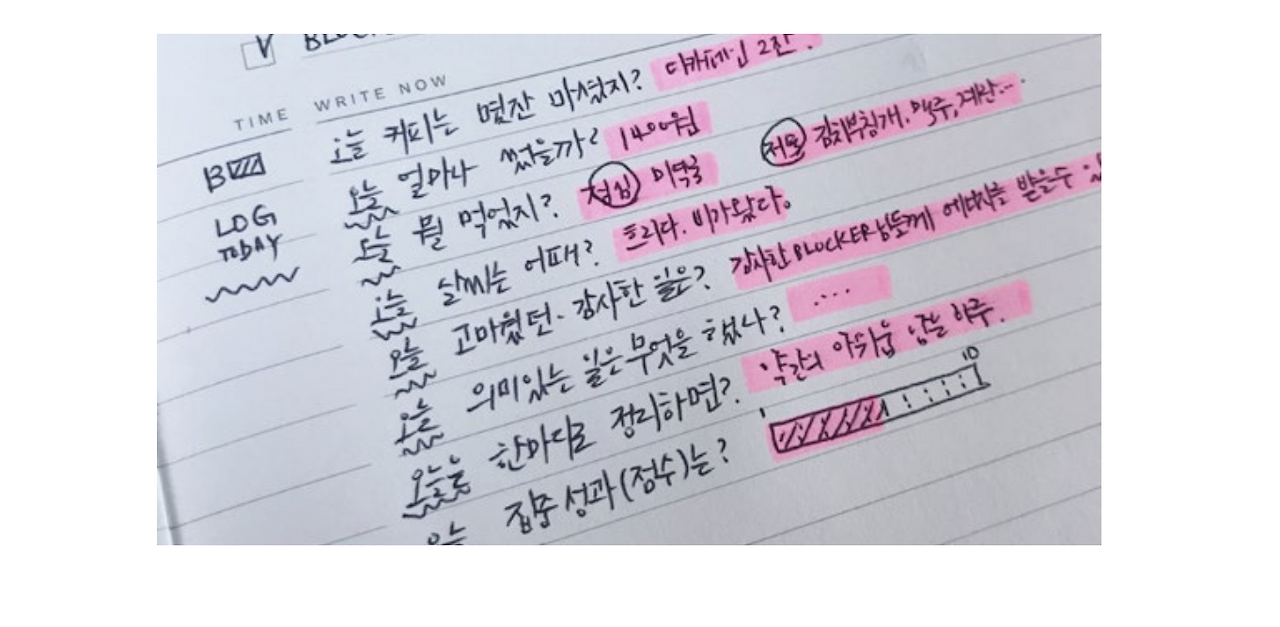 TIME WRITE NOW
오늘 커피는 몇잔 마셨지? 디카페인 2잔.
B
오늘 얼마나 썼을까? 1400원
LOG TODAY
오늘 뭘 먹었지? 점심 미역국 저녁 김치부침개, 맥주, 계란...
오늘 날씨는 어때? 흐리다. 비가왔다.
오늘 고마웠던·감사한 일은? 감사한 BLOCKER님들께 에너지를 받을수
오늘 의미있는 일은 무엇을 했나? ....
오늘을 한마디로 정리하면? 약간의 아쉬움 남는 하루.
오늘 집중 성과(점수)는? 10